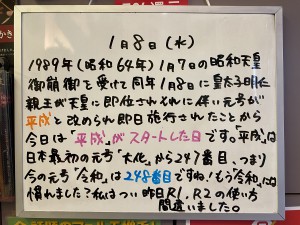 1月8日(水)
1989年(昭和64年)1月7日の昭和天皇
御崩御を受けて同年1月8日に皇太子明仁
親王が天皇に即位されそれに伴い元号が
平成と改められ即日施行されたことから
今日は「平成」がスタートした日です。「平成」は
日本最初の元号「大化」から247番目、つまり
今の元号「令和」は248番目ですね!もう令和には
慣れました?私はつい昨日R1、R2の使い方
間違いました。